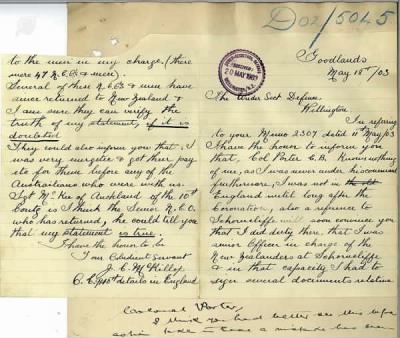 D02/5045
Goodlands
May 18th/03
The Under Sect Defence
Wellington
In refering
to your Memo 2307 dated 15th May/03
I have the honor to inform you
that, Col Porter C.B. Knows nothing
of me, as I was never under his command
furthermore, I was not in
England until long after the
Coronation, also a reference to
Shorncliffe will soon convince you
that I did duty there, that I was
senior Officer in charge of the
New Zealanders at Shorncliffe
& in that capacity I had to
sign several documents relative
to the men in my charge. (there
were 47 N.C.O's & men).
Several of these N.C.O's & men have
since returned to New Zealand &
I am sure they can verify the
truth of my statement, if it is
doubted
They could also inform you that I
was very energetic & got their pay
etc for them before any of the
Australians who were with us.
Sgt McKee of Auckland of the 10th
Contgt is I think the Senior N.C.O.
who has returned, he could tell you
that my statement is true.
I have the honor to be
Your Obedient Servant
J. C. McKillop
O.C. details in England
Colonel Porter,
I think you had better see this before
action taken a mistake has been
RECEIVED
20 MAY 1903